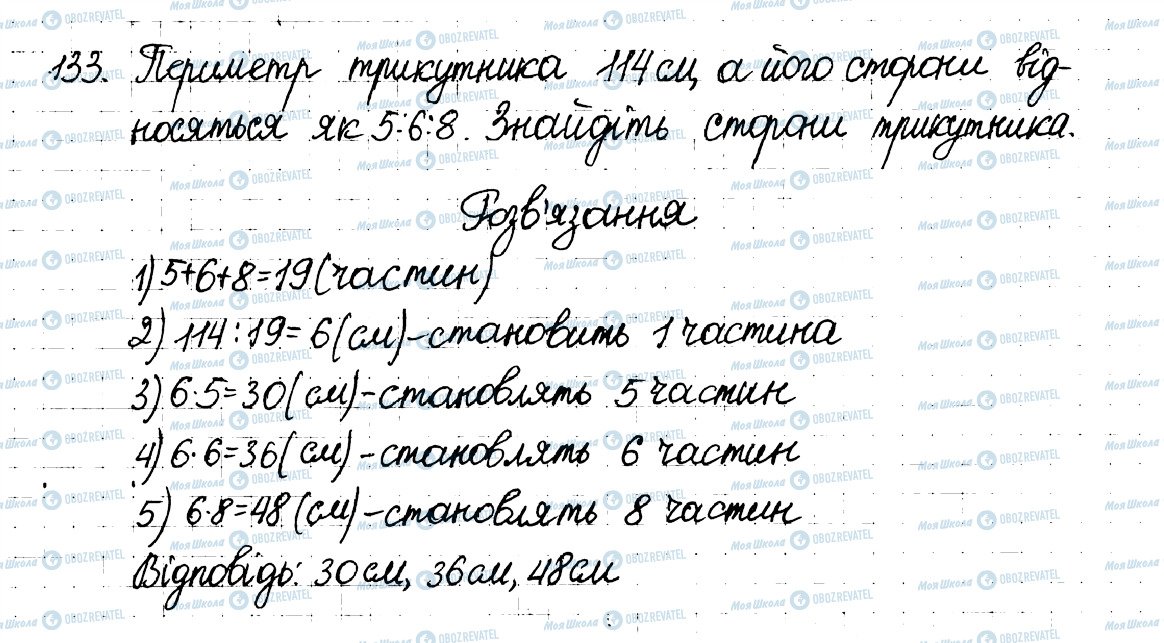 133. Периметр трикутника 114 см, а його сторони від-
носяться як 5:6:8. Знайдіть сторони трикутника.
Розв'язання
1) 5+6+8=19 (частин)
2) 114:19=6 (см) - становить 1 частина
3) 6·5=30 (см) - становлять 5 частин
4) 6·6=36 (см) - становлять 6 частин
5) 6·8=48 (см) - становлять 8 частин
Відповідь: 30 см, 36 см, 48 см
МояШкола OBOZREVATEL